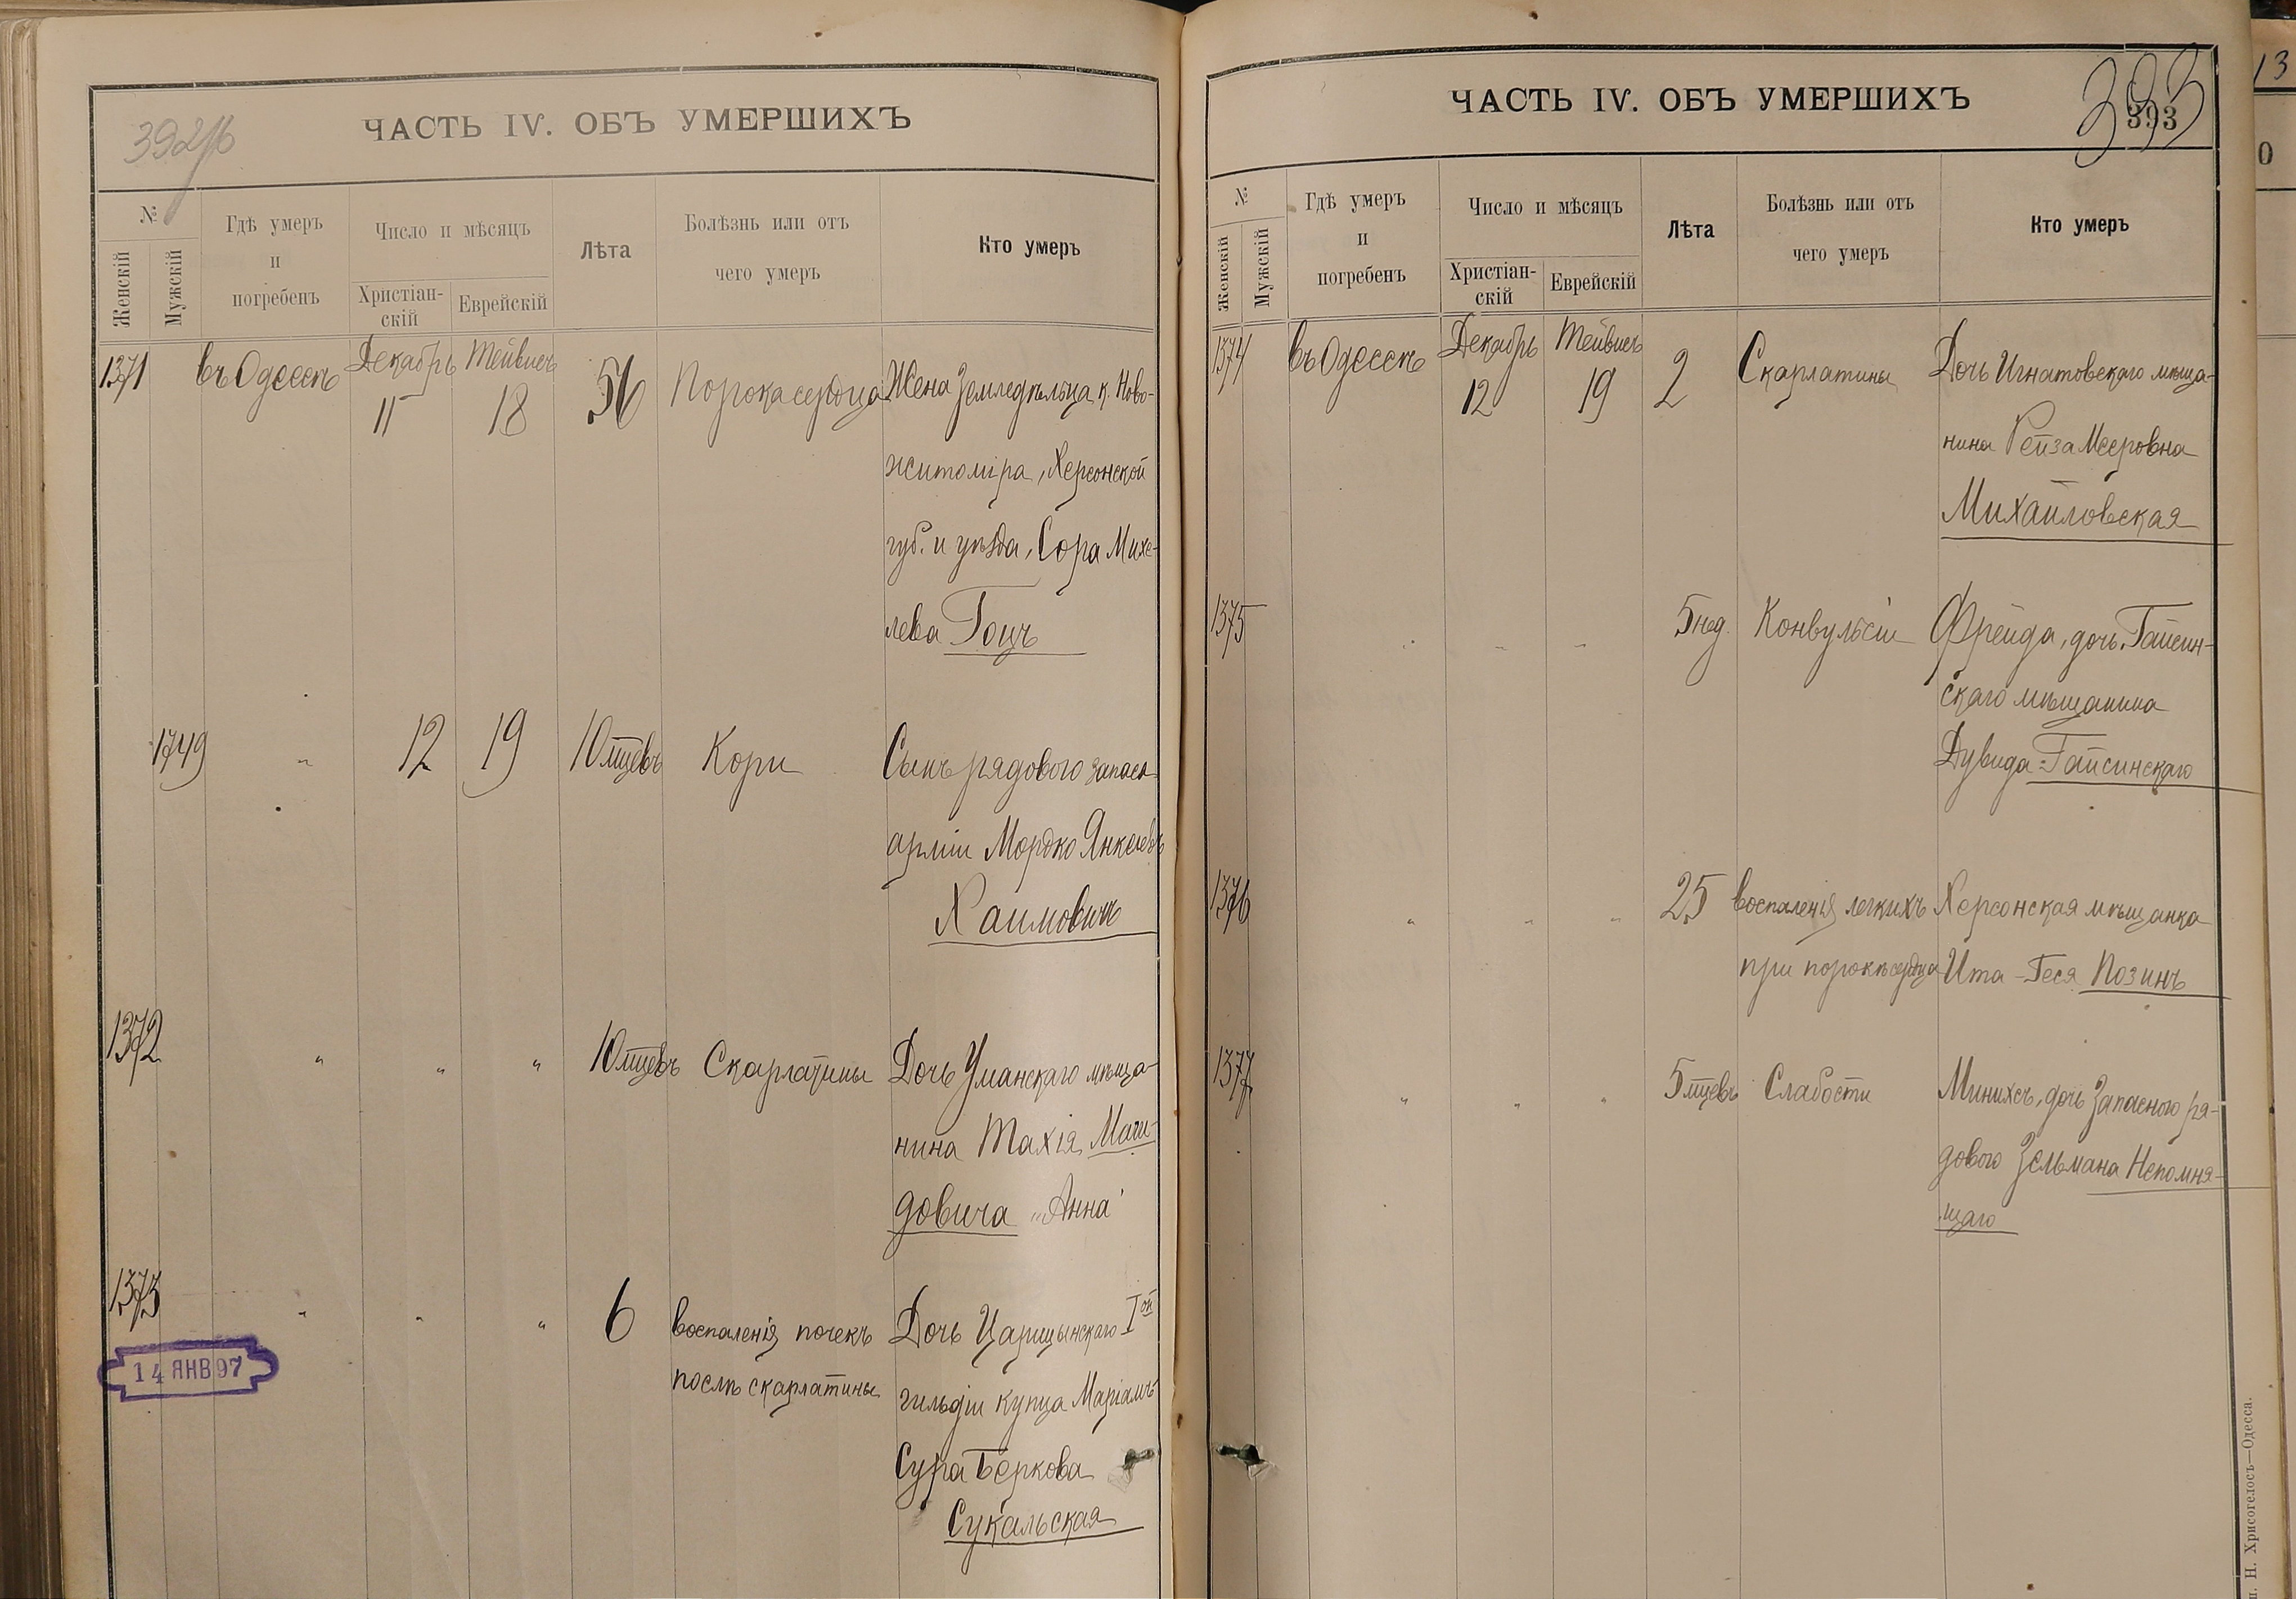 392 об
ЧАСТЬ IV. ОБЪ УМЕРШИХЪ
№
Женскій
Мужскій
Гдѣ умеръ
и
погребенъ
Число и мѣсяцъ
Христіан-
скій
Еврейскій
Лѣта
Болѣзнь или отъ
чего умеръ
Кто умеръ
1371 въ Одессѣ Декабрь 11 Тейвисъ 18 56 Порока сердца Жена Земледѣльца к. Ново-
житоміра, Херсонской
губ. и уѣзда, Сора Михе-
лева Гоцъ
1749 " 12 19 10 мцевъ Кори Сынъ рядового запаса
арміи Мордко Янкелевъ
Хаимовичъ
1372 " " " 10 мцевъ Скарлатины Дочь Уманскаго мѣща-
нина Тахія Маги-
довича „Анна"
1373 " " " 6 воспаленія почекъ Дочь Царицынскаго Iой
послѣ скарлатины гильдіи купца Маріамъ
Сура Беркова
Сукальская
14 ЯНВ 97
ЧАСТЬ IV. ОБЪ УМЕРШИХЪ
393
393
№
Женскій
Мужскій
Гдѣ умеръ
и
погребенъ
Число и мѣсяцъ
Христіан-
скій
Еврейскій
Лѣта
Болѣзнь или отъ
чего умеръ
Кто умеръ
1374 въ Одессѣ Декабрь 12 Тейвисъ 19 2 Скарлатины Дочь Игнатовскаго мѣща-
нина Рейза Мееровна
Михайловская
1375 " " " 5 нед. Конвульсіи Фрейда, дочь Гайсин-
скаго мѣщанина
Дувида Гайсинскаго
1376 " " " 25 воспаленія легкихъ Херсонская мѣщанка
при порокѣ сердца Ита-Геся Позинъ
1377 " " " 5 мцевъ Слабости Минихсъ, дочь Запасного ря-
дового Зельмана Непомня-
щаго
п. Н. Хрисогелосъ—Одесса.
13
0